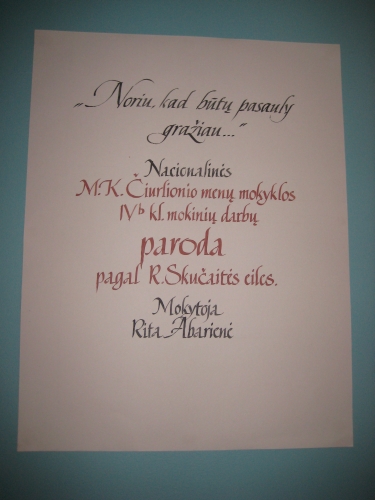 „Noriu, kad būtų pasauly
gražiau..."
Nacionalinės
M.K. Čiurlionio menų mokyklos
IVb kl. mokinių darbų
paroda
pagal R. Skučaitės eiles.
Mokytoja
Rita Abarienė